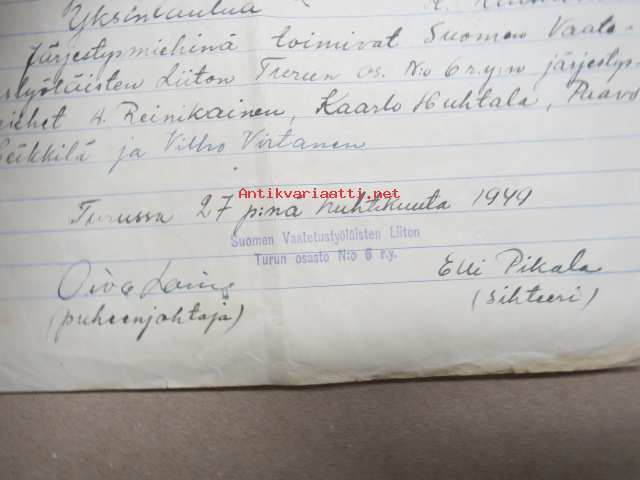 Yksinlaulua
Järjestysmiehinä toimivat Suomen Vaate-
styöläisten Liiton Turun os. N:o 6 r.y:n järjestys-
miehet A. Reinikainen, Kaarlo Huhtala, Paavo
Heikkilä ja Vilho Virtanen
Antikvariaatti.net
Turussa 27 p:nä huhtikuuta 1949
Suomen Vaatetustyöläisten Liiton
Turun osasto N:o 6 r.y.
Oiva Elli Pikala
(puheenjohtaja) (sihteeri)